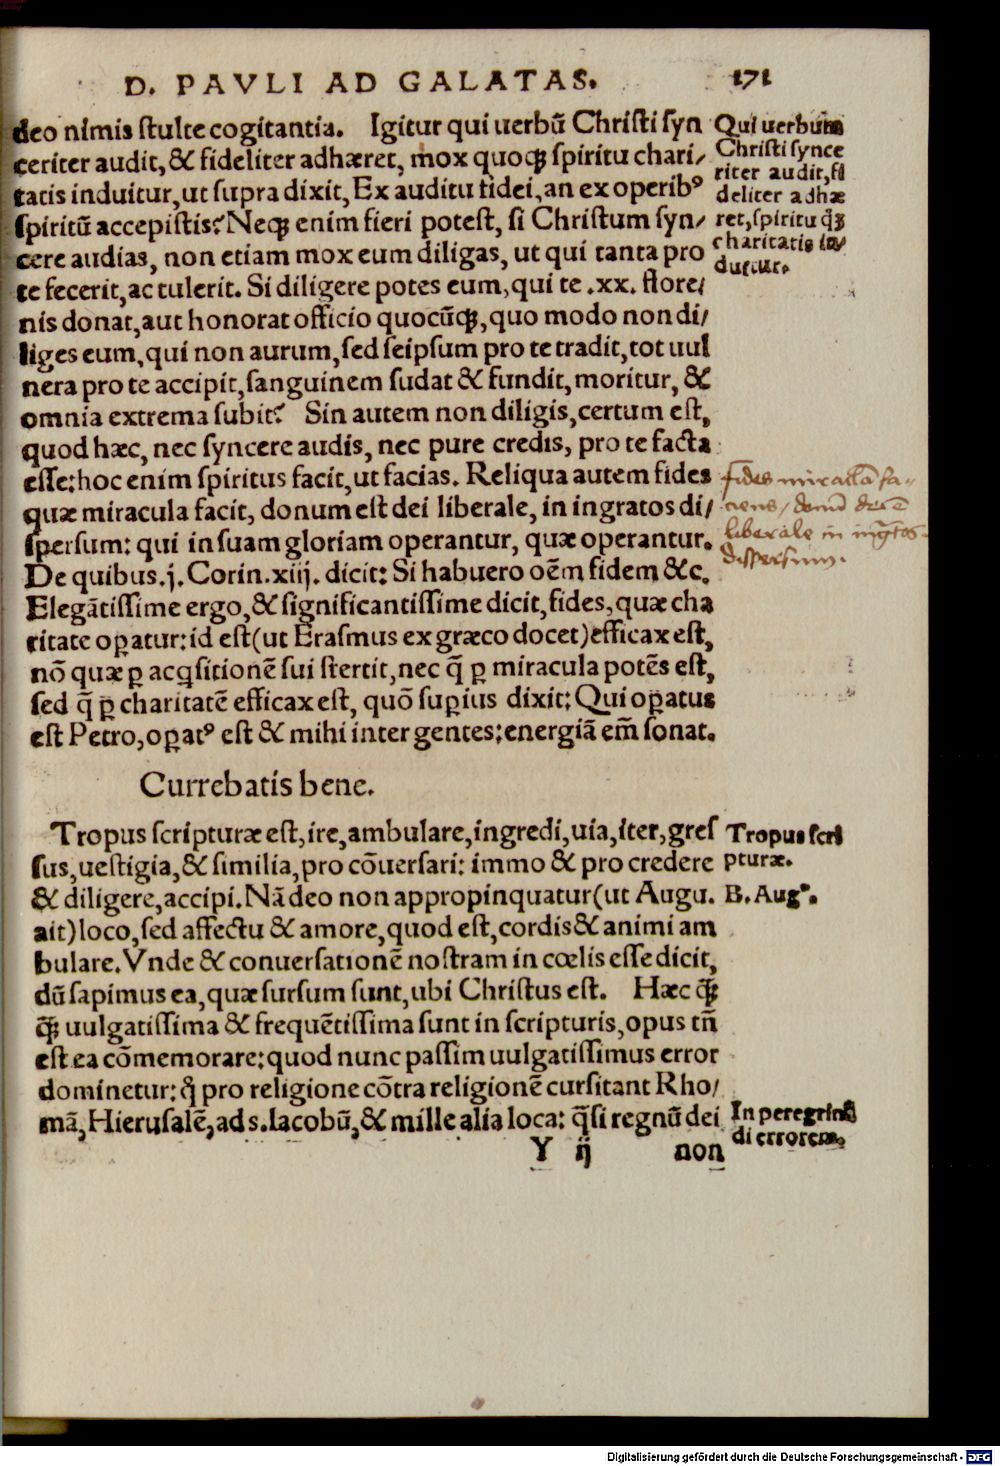 D. PAVLI AD GALATAS. 171
deo nimis stulte cogitantia. Igitur qui uerbū Christi syn
ceriter audit, & fideliter adhæret, mox quoq; spiritu chari/
tatis induitur, ut supra dixit, Ex auditu fidei, an ex operib⁹
spiritū accepistis? Neq; enim fieri potest, si Christum syn/
cere audias, non etiam mox eum diligas, ut qui tanta pro
te fecerit, ac tulerit. Si diligere potes eum, qui te .xx. flore/
nis donat, aut honorat officio quocūq;, quo modo non di/
liges eum, qui non aurum, sed seipsum pro te tradit, tot uul
nera pro te accipit, sanguinem sudat & fundit, moritur, &
omnia extrema subit? Sin autem non diligis, certum est,
quod hæc, nec syncere audis, nec pure credis, pro te facta
esse: hoc enim spiritus facit, ut facias. Reliqua autem fides
quæ miracula facit, donum est dei liberale, in ingratos di/
spersum: qui in suam gloriam operantur, quæ operantur.
De quibus .j. Corin. xiij. dicit: Si habuero oēm fidem &c.
Elegātissime ergo, & significantissime dicit, fides, quæ cha
ritate oꝑatur: id est (ut Erasmus ex græco docet) efficax est,
nō quæ ꝑ acq̇sitionē sui stertit, nec q̄ ꝑ miracula potēs est,
sed q̄ ꝑ charitatē efficax est, quō suꝑius dixit: Qui oꝑatus
est Petro, oꝑat⁹ est & mihi inter gentes: energiā em̄ sonat.
Currebatis bene.
Tropus scripturæ est, ire, ambulare, ingredi, uia, iter, gres
sus, uestigia, & similia, pro cōuersari: immo & pro credere
& diligere, accipi. Nā deo non appropinquatur (ut Augu.
ait) loco, sed affectu & amore, quod est, cordis & animi am
bulare. Vnde & conuersationē nostram in cœlis esse dicit,
dū sapimus ea, quæ sursum sunt, ubi Christus est. Hæc q̄q;
q̄q; uulgatissima & frequētissima sunt in scripturis, opus tn̄
est ea cōmemorare: quod nunc passim uulgatissimus error
dominetur: q̇ pro religione cōtra religionē cursitant Rho/
mā, Hierusalē, ad s. Iacobū, & mille alia loca: q̄si regnū dei
Y ij non
Qui uerbum
Christi synce
riter audit, fi
deliter adhæ
ret, spiritu q̄q;
charitatis in/
duitur.
fides miracula fa-
ciens, donum dei ē
liberale in ingratos
dispersum.
Tropus scri
pturæ.
B. Aug⁹.
In peregrinā
di errorem.
Digitalisierung gefördert durch die Deutsche Forschungsgemeinschaft - DFG